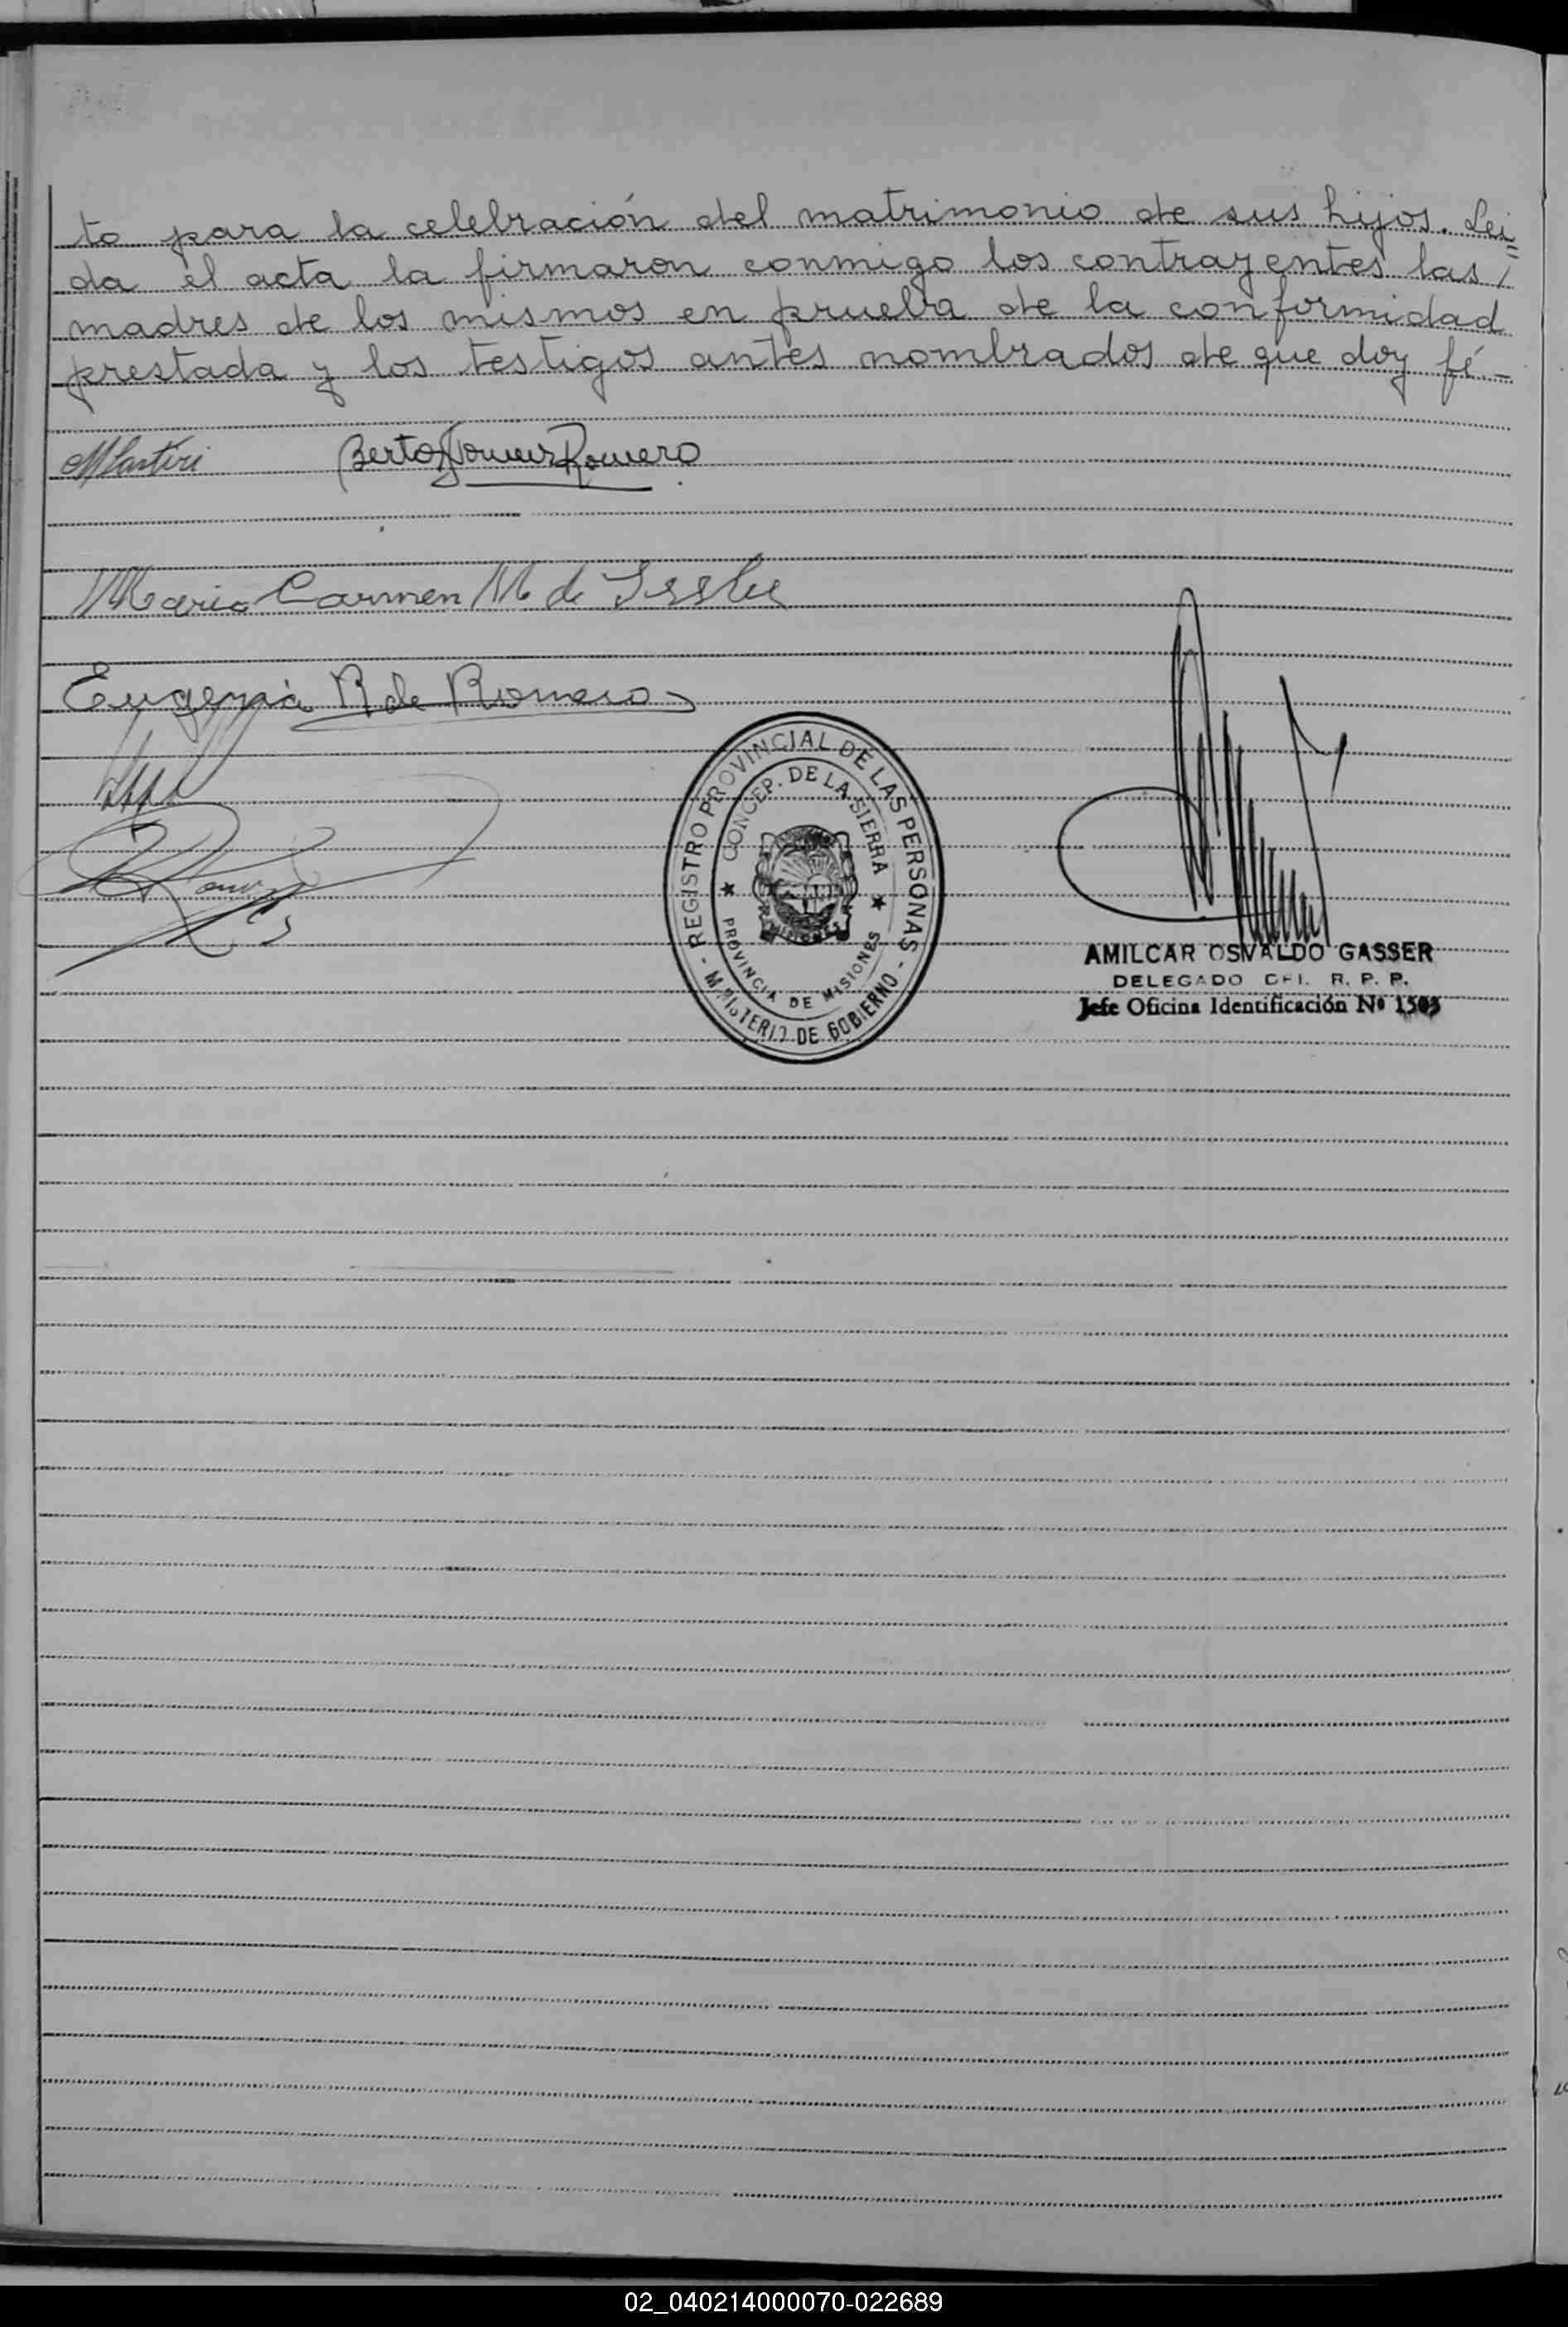 to para la celebración del matrimonio de sus hijos. Lei=
da el acta la firmaron conmigo los contrayentes las /
madres de los mismos en prueba de la conformidad
prestada y los testigos antes nombrados de que doy fé.-
Berto Romero
Maria Carmen M de
Eugenia R de Romero
REGISTRO PROVINCIAL DE LAS PERSONAS - MINISTERIO DE GOBIERNO -
CONCEP. DE LA SIERRA
PROVINCIA DE MISIONES
MISIONES
AMILCAR OSVALDO GASSER
DELEGADO DEL R. P. P.
Jefe Oficina Identificación Nº 1505
02_040214000070-022689